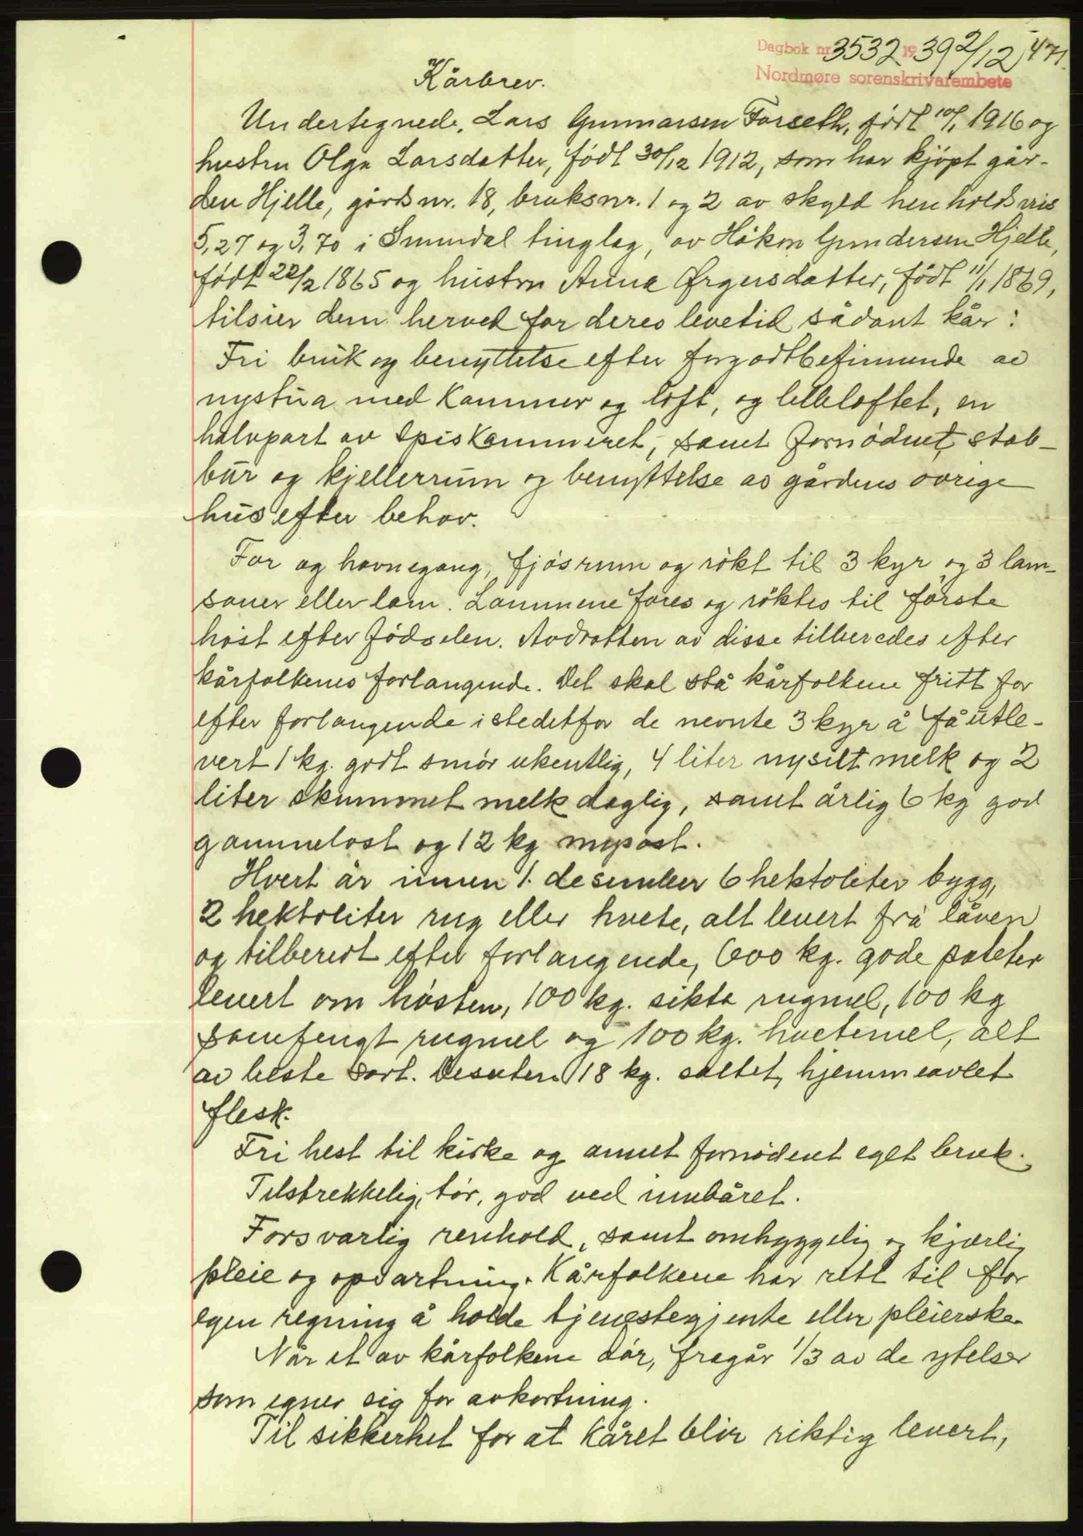 Dagbok nr. 3532 1939 2/12 471.
Nordmøre sorenskriverembete
Kårbrev.
Undertegnede, Lars Gunnarsen Forseth, født 10/1 1916 og
hustru Olga Larsdatter, født 30/12 1912, som har kjøpt går-
den Hjelle, gårdsnr. 18, bruksnr. 1 og 2 av skyld henholdsvis
5,27 og 3,70 i Sunndal tinglag, av Håkon Gundersen Hjelle,
født 22/2 1865 og hustru Anna Ørgersdatter, født 11/1 1869,
tilsier dem herved for deres levetid sådant kår:
Fri bruk og benyttelse efter forgodtbefinnende av
nystua med kammer og loft, og lilleloftet, en
halvpart av spiskammeret, samt fornødent stab-
bur og kjellerrum og benyttelse av gårdens øvrige
hus efter behov.
For og havnegang, fjøsrum og røkt til 3 kyr og 3 lam-
sauer eller lam. Lammene fores og røktes til første
høst efter fødselen. Avdrotten av disse tilberedes efter
kårfolkenes forlangende. Det skal stå kårfolkene fritt for
efter forlangende istedetfor de nevnte 3 kyr å få utle-
vert 1 kg. godt smør ukentlig, 4 liter nysilt melk og 2
liter skummet melk daglig, samt årlig 6 kg god
gammelost og 12 kg mysost.
Hvert år innen 1. desember 6 hektoliter bygg,
2 hektoliter rug eller hvete, alt levert fra låven
og tilberedt efter forlangende, 600 kg. gode poteter
levert om høsten, 100 kg. sikta rugmel, 100 kg
samfengt rugmel og 100 kg. hvetemel, alt
av beste sort. Desuten 18 kg. saltet, hjemmeavlet
flesk.
Fri hest til kirke og annet fornødent eget bruk.
Tilstrekkelig, tør, god ved innbåret.
Forsvarlig renhold, samt omhyggelig og kjærlig
pleie og opvartning. Kårfolkene har rett til for
egen regning å holde tjenestegjente eller pleierske.
Når et av kårfolkene dør, fragår 1/3 av de ytelser
som egner sig for avkortning.
Til sikkerhet for at kåret blir riktig levert,